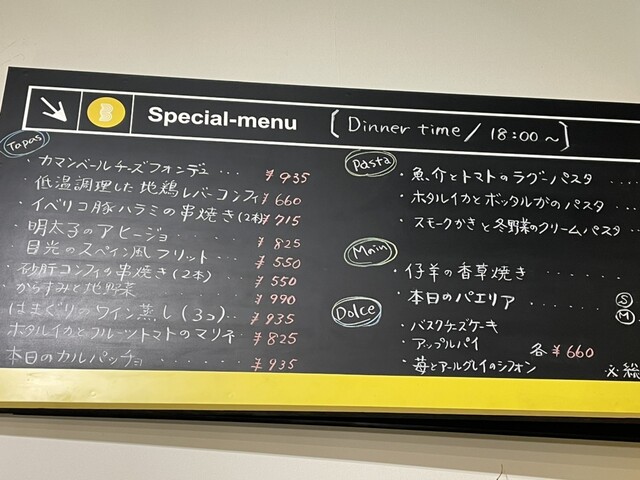 B Special-menu [Dinner time / 18:00~]
Tapas
・カマンベールチーズフォンデュ... ¥935
・低温調理した地鶏レバーコンフィ ¥660
・イベリコ豚ハラミの串焼き(2本) ¥715
・明太子のアヒージョ ¥825
・目光のスペイン風フリット... ¥550
・砂肝コンフィの串焼き(2本) ¥550
・からすみと地野菜 ¥990
・はまぐりのワイン蒸し(3コ) ¥935
・ホタルイカとフルーツトマトのマリネ ¥825
・本日のカルパッチョ ¥935
Pasta
・魚介とトマトのラグーパスタ ...
・ホタルイカとボッタルガのパスタ ...
・スモークかきと冬野菜のクリームパスタ
Main
・仔羊の香草焼き ......
・本日のパエリア ...... S
M
Dolce
・バスクチーズケーキ
・アップルパイ 各 ¥660
・苺とアールグレイのシフォン
※総